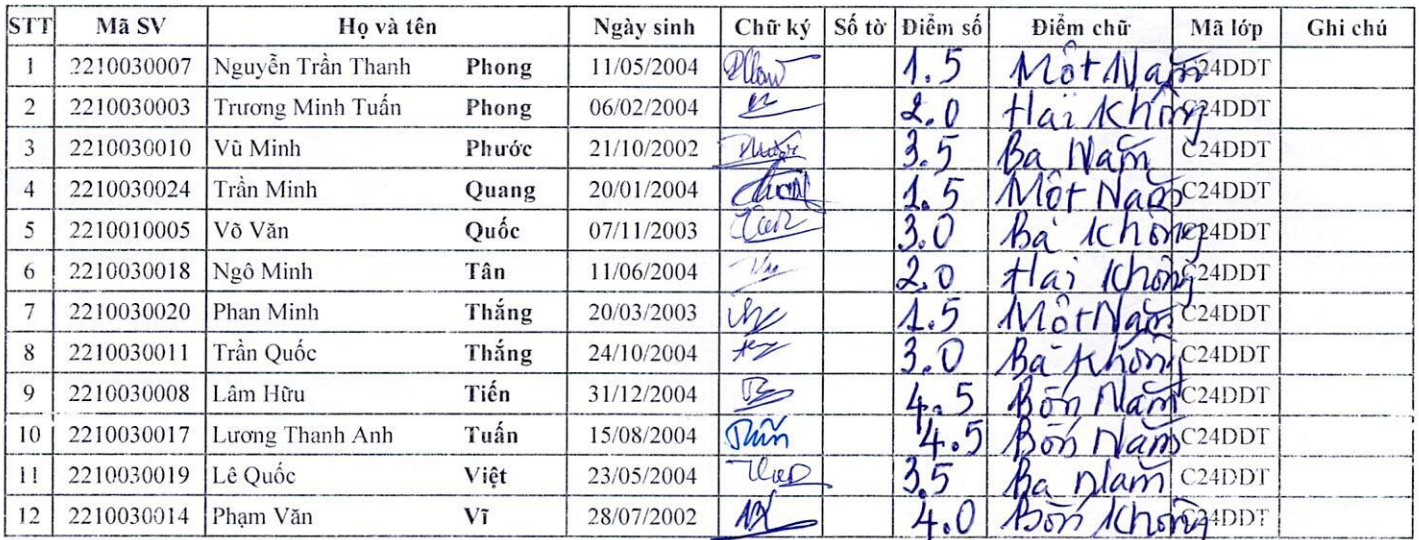 STT Mã SV Họ và tên Ngày sinh Chữ ký Số tờ Điểm số Điểm chữ Mã lớp Ghi chú
1 2210030007 Nguyễn Trần Thanh Phong 11/05/2004 1.5 Một Năm C24DDT
2 2210030003 Trương Minh Tuấn Phong 06/02/2004 2.0 Hai Không C24DDT
3 2210030010 Vũ Minh Phước 21/10/2002 3.5 Ba Năm C24DDT
4 2210030024 Trần Minh Quang 20/01/2004 1.5 Một Năm C24DDT
5 2210010005 Võ Văn Quốc 07/11/2003 3.0 Ba Không C24DDT
6 2210030018 Ngô Minh Tân 11/06/2004 2.0 Hai Không C24DDT
7 2210030020 Phan Minh Thắng 20/03/2003 1.5 Một Năm C24DDT
8 2210030011 Trần Quốc Thắng 24/10/2004 3.0 Ba Không C24DDT
9 2210030008 Lâm Hữu Tiến 31/12/2004 4.5 Bốn Năm C24DDT
10 2210030017 Lương Thanh Anh Tuấn 15/08/2004 4.5 Bốn Năm C24DDT
11 2210030019 Lê Quốc Việt 23/05/2004 3.5 Ba Năm C24DDT
12 2210030014 Phạm Văn Vĩ 28/07/2002 4.0 Bốn Không C24DDT